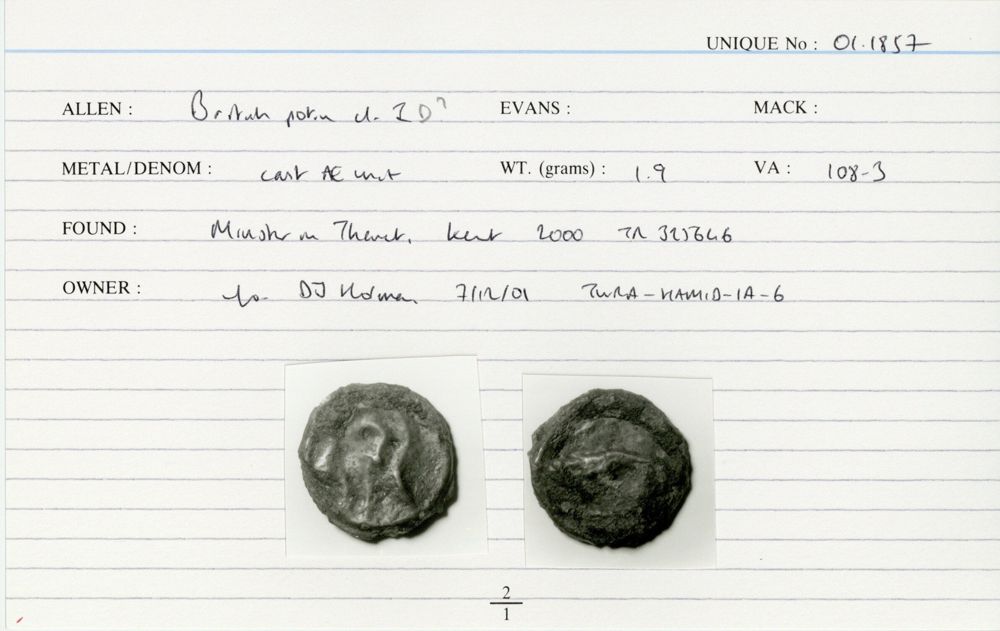 UNIQUE No : 01.1857
ALLEN : British potin cl. I D? EVANS : MACK :
METAL/DENOM : cast AE unit WT. (grams) : 1.9 VA : 108-3
FOUND : Minster in Thanet, Kent 2000 TR
OWNER : DJ Holman 7/12/01
2
1